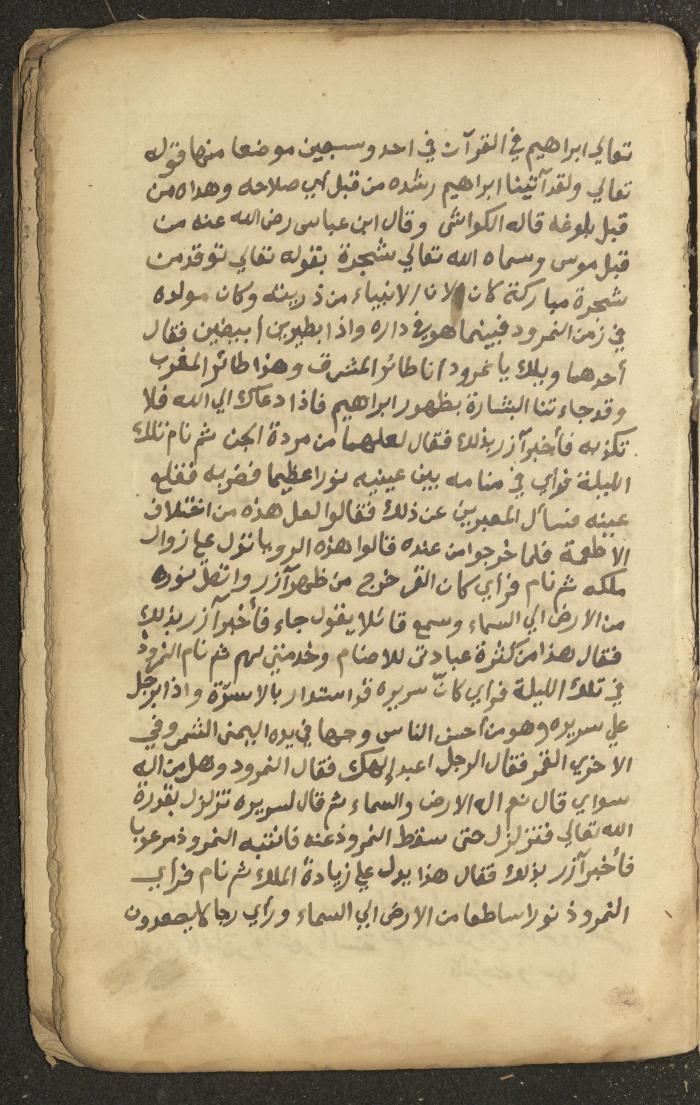 تعالي ابراهيم في القرآن في احد وسبعين موضعا منها قوله
تعالي ولقد آتينا ابراهيم رشده من قبل اي صلاحه وهداه من
قبل بلوغه قاله الكواشى وقال ابن عباس رضى الله عنه من
قبل موسى وسماه الله تعالي شجرة بقوله تعالي توقد من
شجرة مباركة كان لان الانبياء من ذريته وكان مولده
في زمن النمرود فبينما هو في داره واذا بطيرين ابيضين فقال
أحدهما ويلك يا نمرود انا طائر المشرق وهذا طائر المغرب
وقد جاءتنا البشارة بظهور ابراهيم فاذا دعاك الي الله فلا
تكذبه فأخبر آزر بذلك فقال لعلهما من مردة الجن ثم نام تلك
الليلة فراي في منامه بين عينيه نورا عظيما فضربه فقلع
عينه فسأل المعبرين عن ذلك فقالوا لعل هذه من اختلاف
الاطعمة فلما خرجوا من عنده قالوا هذه الرويا تدل علي زوال
ملكه ثم نام فراي كان القمر خرج من ظهر آزر واتصل نوره
من الارض الي السماء وسمع قائلا يقول جاء فأخبر آزر بذلك
فقال هذا من كثرة عبادتى للاصنام وخدمتى لهم ثم نام النمروذ
في تلك الليلة فراي كانّ سريره قد استدار بالاسرّة واذا برجل
علي سريره وهو من أحسن الناس وجها في يده اليمنى الشمس وفي
الاخري القمر فقال الرجل اعبد إلهك فقال النمرود وهل من اله
سواي قال نعم اله الارض والسماء ثم قال لسريره تزلزل بقدرة
الله تعالي فتزلزل حتى سقط النمروذ عنه فانتبه النمروذ مرعوبا
فأخبر آزر بذلك فقال هذا يدل علي زيادة الملك ثم نام فراي
النمروذ نورا ساطعا من الارض الي السماء وراي رجالا يصعدون